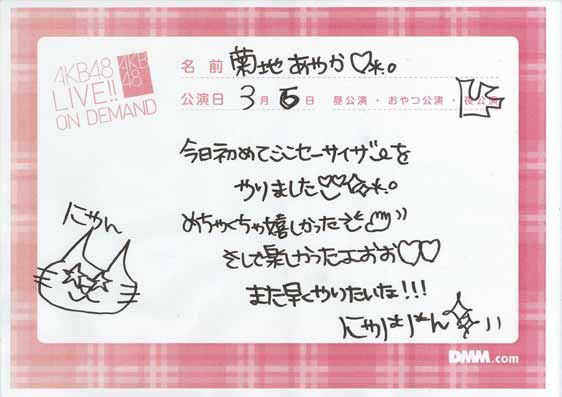 AKB48
LIVE!!
ON DEMAND
AKB
48
名前 菊地あやか♡*。
公演日 3月6日 昼公演・おやつ公演・夜公演
今日初めてここセーサイザーを
やりました♡☆*。
めちゃくちゃ嬉しかったぞ
そして楽しかったよおお♡♡
また早くやりたいな!!!
にゃん
DMM.com